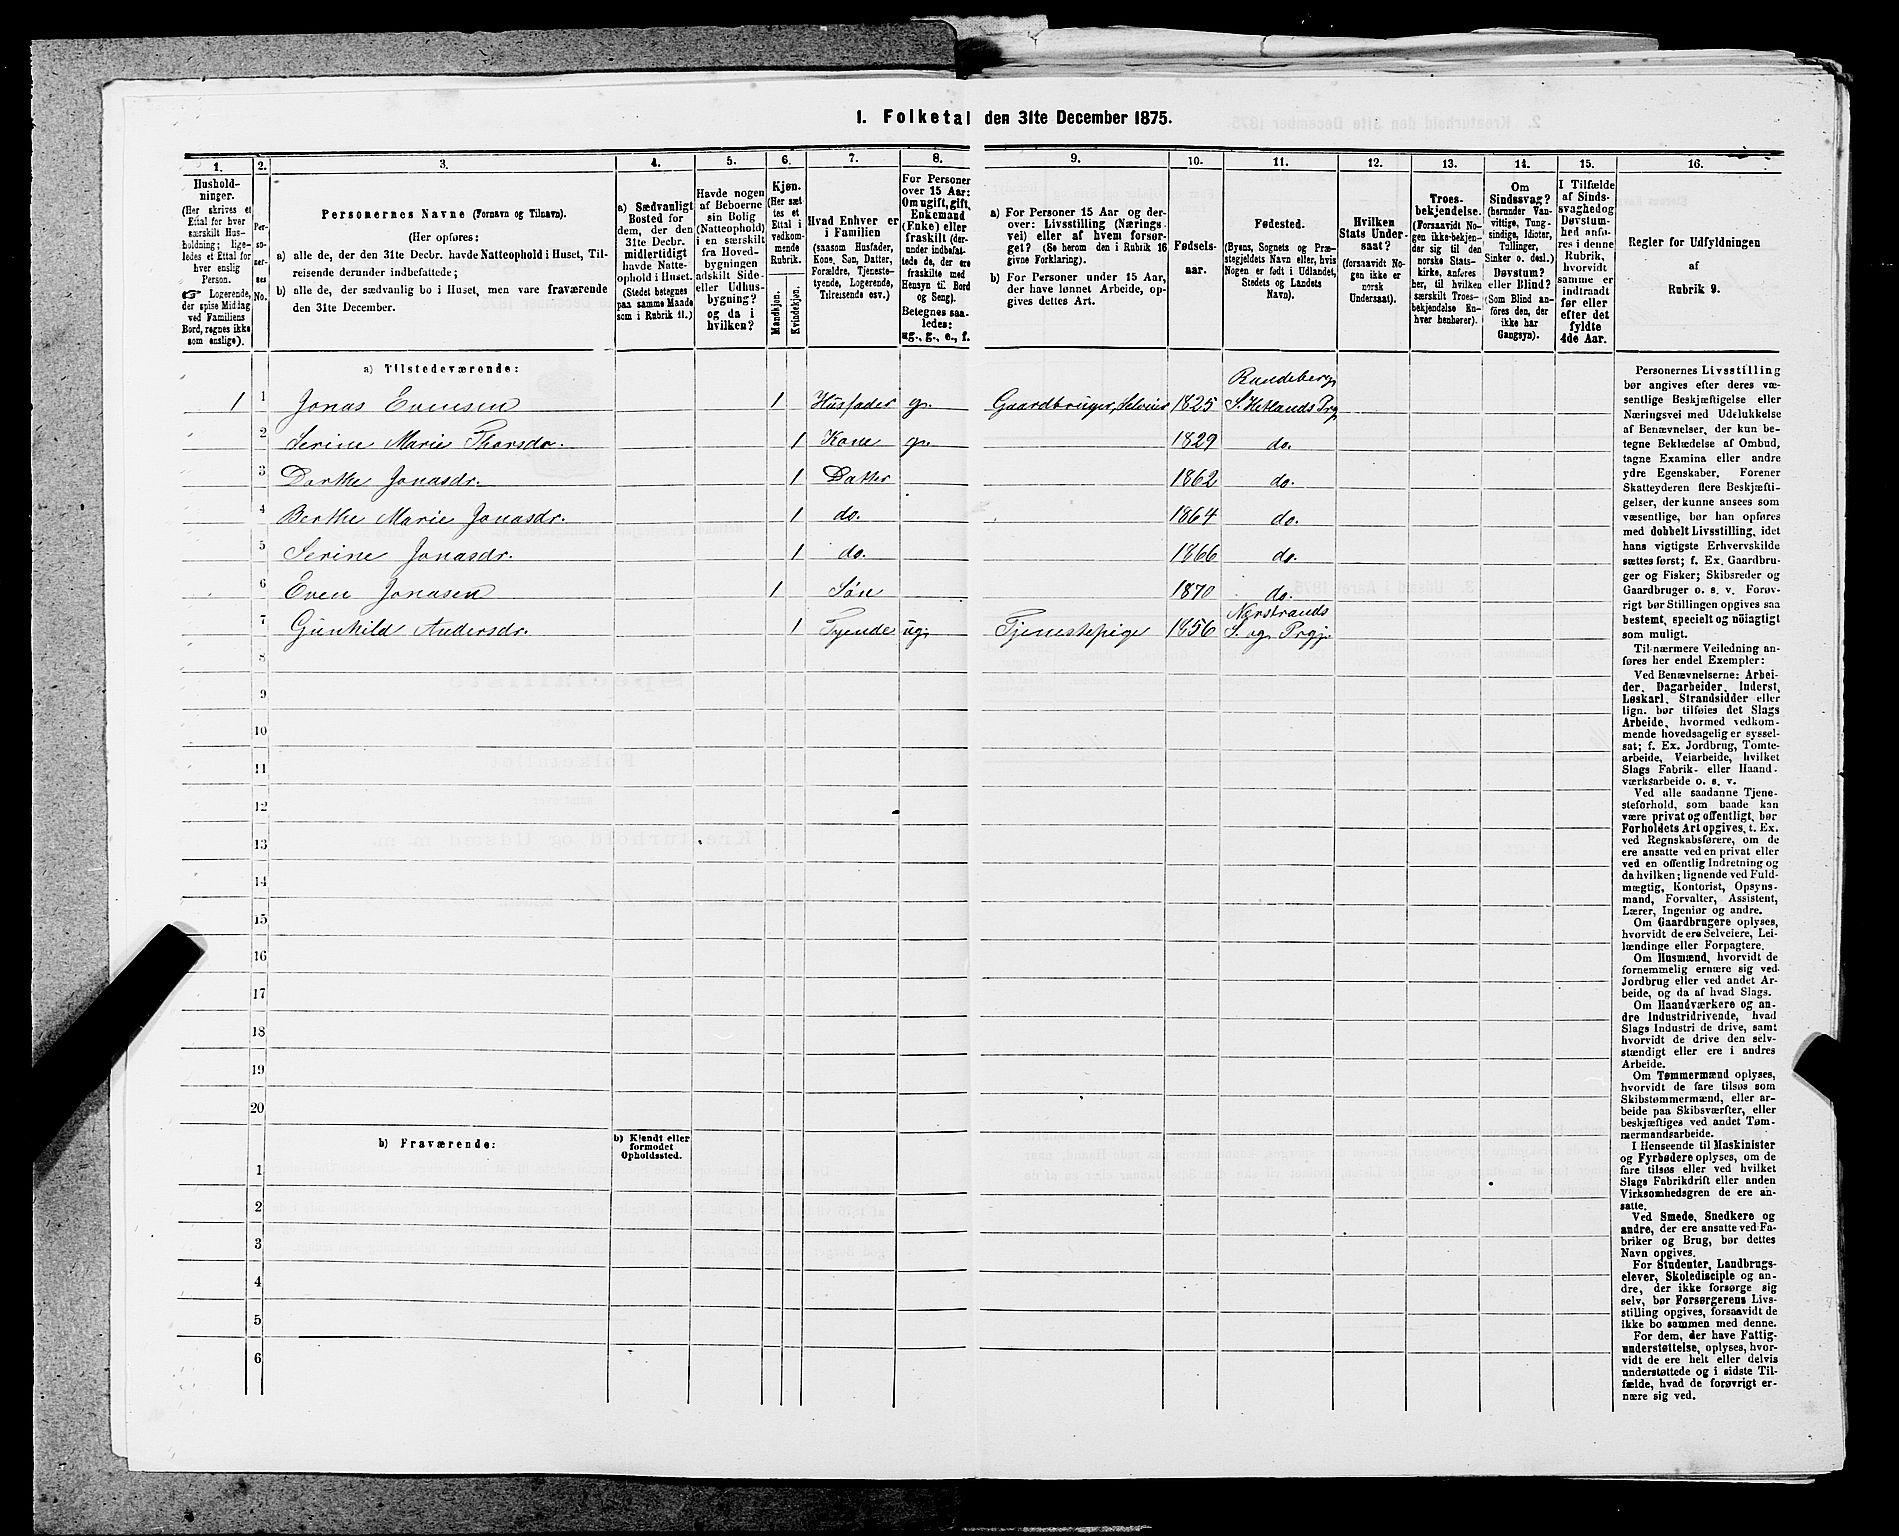 1. Folketal den 31te December 1875.
1. 2. 3. 4. 5. 6. 7. 8. 9. 10. 11. 12. 13. 14. 15. 16.
Hushold-
ninger.
(Her skrives et
Ettal for hver
særskilt Hus-
holdning; lige-
ledes et Ettal for
hver enslig
Person.
☞ Logerende,
der spise Middag
ved Familiens
Bord, regnes ikke
som enslige).
Per-
so-
ner-
nes
No.
Personernes Navne (Fornavn og Tilnavn).
(Her opføres:
a) alle de, der den 31te Decbr. havde Natteophold i Huset, Til-
reisende derunder indbefattede;
b) alle de, der sædvanlig bo i Huset, men vare fraværende
den 31te December.
a) Sædvanligt
Bosted for
dem, der den
31te Decbr.
midlertidigt
havde Natte-
ophold i Huset.
(Stedet betegnes
paa samme Maade
som i Rubrik 11.)
Havde nogen
af Beboerne
sin Bolig
(Natteophold)
i en særskilt
fra Hoved-
bygningen
adskilt Side-
eller Udhus-
bygning?
og da i
hvilken?
Kjøn.
(Her sæt-
tes et
Ettal i
vedkom-
mende
Rubrik.
Mandkjøn.
Kvindekjøn.
Hvad Enhver er
i Familien
(saasom Husfader,
Kone, Søn, Datter,
Forældre, Tjeneste-
tyende, Logerende,
Tilreisende osv.)
For Personer
over 15 Aar:
Om ugift, gift,
Enkemand
(Enke) eller
fraskilt (der-
under indbefat-
tede de, der ere
fraskilte med
Hensyn til Bord
og Seng).
Betegnes saa-
ledes:
ug., g., e., f.
a) For Personer 15 Aar og der-
over: Livsstilling (Nærings-
vei) eller af hvem forsør-
get? (Se herom den i Rubrik 16
givne Forklaring).
b) For Personer under 15 Aar,
der have lønnet Arbeide, op-
gives dettes Art.
Fødsels-
aar.
Fødested.
(Byens, Sognets og Præ-
stegjeldets Navn eller, hvis
Nogen er født i Udlandet,
Stedets og Landets
Navn).
Hvilken
Stats Under-
saat?
(forsaavidt No-
gen ikke er
norsk
Undersaat).
Troes-
bekjendelse.
(Forsaavidt No-
gen ikke-bekjen-
der sig til den
norske Stats-
kirke, anføres
her, til hvilken
særskilt Troes-
bekjendelse En-
hver henhører).
Om
Sindssvag?
(herunder Van-
vittige, Tung-
sindige, Idioter,
Tullinger,
Sinker o. desl.)
Døvstum?
eller Blind?
(Som Blind an-
føres den, der
ikke har
Gangsyn).
I Tilfælde
af Sinds-
svaghed og
Døvstum-
hed anfø-
res i denne
Rubrik,
hvorvidt
samme er
indtraadt
før eller
efter det
fyldte
4de Aar.
Regler for Udfyldningen
af
Rubrik 9.
a) Tilstedeværende:
Rundeberg
1 1 Jonas Evensen 1 Husfader g. Gaardbruger, Selveier 1825 S. Hetlands Prg
2 Serine Marie Thorsdr. 1 Kone g. 1829 do.
3 Dorthe Jonasdr. 1 Datter 1862 do.
4 Berthe Marie Jonasdr. 1 do. 1864 do.
5 Serine Jonasdr. 1 do. 1866 do.
6 Even Jonasen 1 Søn 1870 do.
Nerstrands
7 Gunhild Andersdr. 1 Tyende ug. Tjenestepige 1856 S. og Prgj.
8
9
10
11
12
13
14
15
16
17
18
19
20
b) Fraværende:
b) Kjendt eller
formodet
Opholdssted.
1
2
3
4
5
6
Personernes Livsstilling
bør angives efter deres væ-
sentlige Beskjæftigelse eller
Næringsvei med Udelukkelse
af Benævnelser, der kun be-
tegne Beklædelse af Ombud,
tagne Examina eller andre
ydre Egenskaber. Forener
Skatteyderen flere Beskjæfti-
gelser, der kunne ansees som
væsentlige, bør han opføres
med dobbelt Livsstilling, idet
hans vigtigste Erhvervskilde
sættes først; f. Ex. Gaardbru-
ger og Fisker; Skibsreder og
Gaardbruger o. s. v. Forøv-
rigt bør Stillingen opgives saa
bestemt, specielt og nøiagtigt
som muligt.
Til nærmere Veiledning an-
føres her endel Exempler:
Ved Benævnelserne: Arbei-
der, Dagarbeider, Inderst,
Løskarl, Strandsidder eller
lign. bør tilføies det Slags
Arbeide, hvormed vedkom-
mende hovedsagelig er syssel-
sat; f. Ex. Jordbrug, Tomte-
arbeide, Veiarbeide, hvilket
Slags Fabrik- eller Haand-
værksarbeide o. s. v.
Ved alle saadanne Tjene-
steforhold, som baade kan
være privat og offentligt, bør
Forholdets Art opgives, t. Ex.
ved Regnskabsførere, om de
ere ansatte ved en privat eller
ved en offentlig Indretning og
da hvilken; lignende ved Fuld-
mægtig, Kontorist, Opsyns-
mand, Forvalter, Assistent,
Lærer, Ingeniør og andre.
Om Gaardbrugere oplyses,
hvorvidt de ere Selveiere, Lei-
lændinge eller Forpagtere.
Om Husmænd, hvorvidt de
fornemmelig ernære sig ved
Jordbrug eller ved andet Ar-
beide, og da af hvad Slags.
Om Haandværkere og an-
dre Industridrivende, hvad
Slags Industri de drive, samt
hvorvidt de drive den selv-
stændigt eller ere i andres
Arbeide.
Om Tømmermænd oplyses,
hvorvidt de fare tilsøs som
Skibstømmermænd, eller ar-
beide paa Skibsværfter, eller
beskjæftiges ved andet Tøm-
mermandsarbeide.
I Henseende til Maskinister
og Fyrbødere oplyses, om de
fare tilsøs eller ved hvilket
Slags Fabrikdrift eller anden
Virksomhedsgren de ere an-
satte.
Ved Smede, Snedkere og
andre, der ere ansatte ved Fa-
briker og Brug, bør dettes
Navn opgives.
For Studenter, Landbrugs-
elever, Skoledisciple og an-
dre, der ikke forsørge sig
selv, bør Forsørgerens Livs-
stilling opgives, forsaavidt de
ikke bo sammen med denne.
For dem, der have Fattig-
understøttelse, oplyses, hvor-
vidt de ere helt eller delvis
understøttede og i sidste Til-
fælde, hvad de forøvrigt er-
nære sig ved.